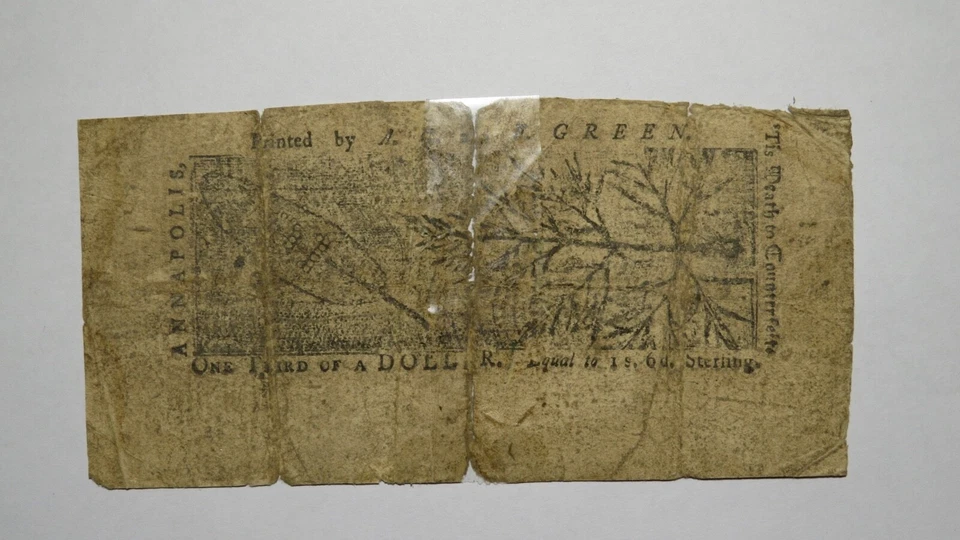 Printed by A. GREEN.
ANNAPOLIS,
'Tis Death to Counterfeit.
ONE THIRD OF A DOLLAR. Equal to 1s. 6d. Sterling.